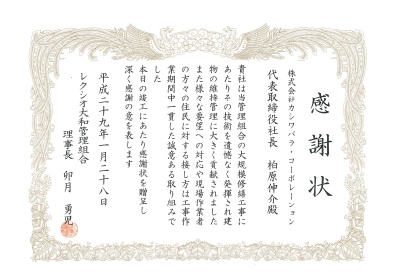 感謝状
株式会社カシワバラ・コーポレーション
代表取締役社長　柏原伸介殿
貴社は当管理組合の大規模修繕工事に
あたりその技術を遺憾なく発揮され建
物の維持管理に大きく貢献されました
また様々な要望への対応や現場作業者
の方々の住民に対する接し方は工事作
業期間中一貫した誠意ある取り組みで
した
本日の竣工にあたり感謝状を贈呈し
深く感謝の意を表します
平成二十九年一月二十八日
レクシオ大和管理組合
理事長　卯月　勇児